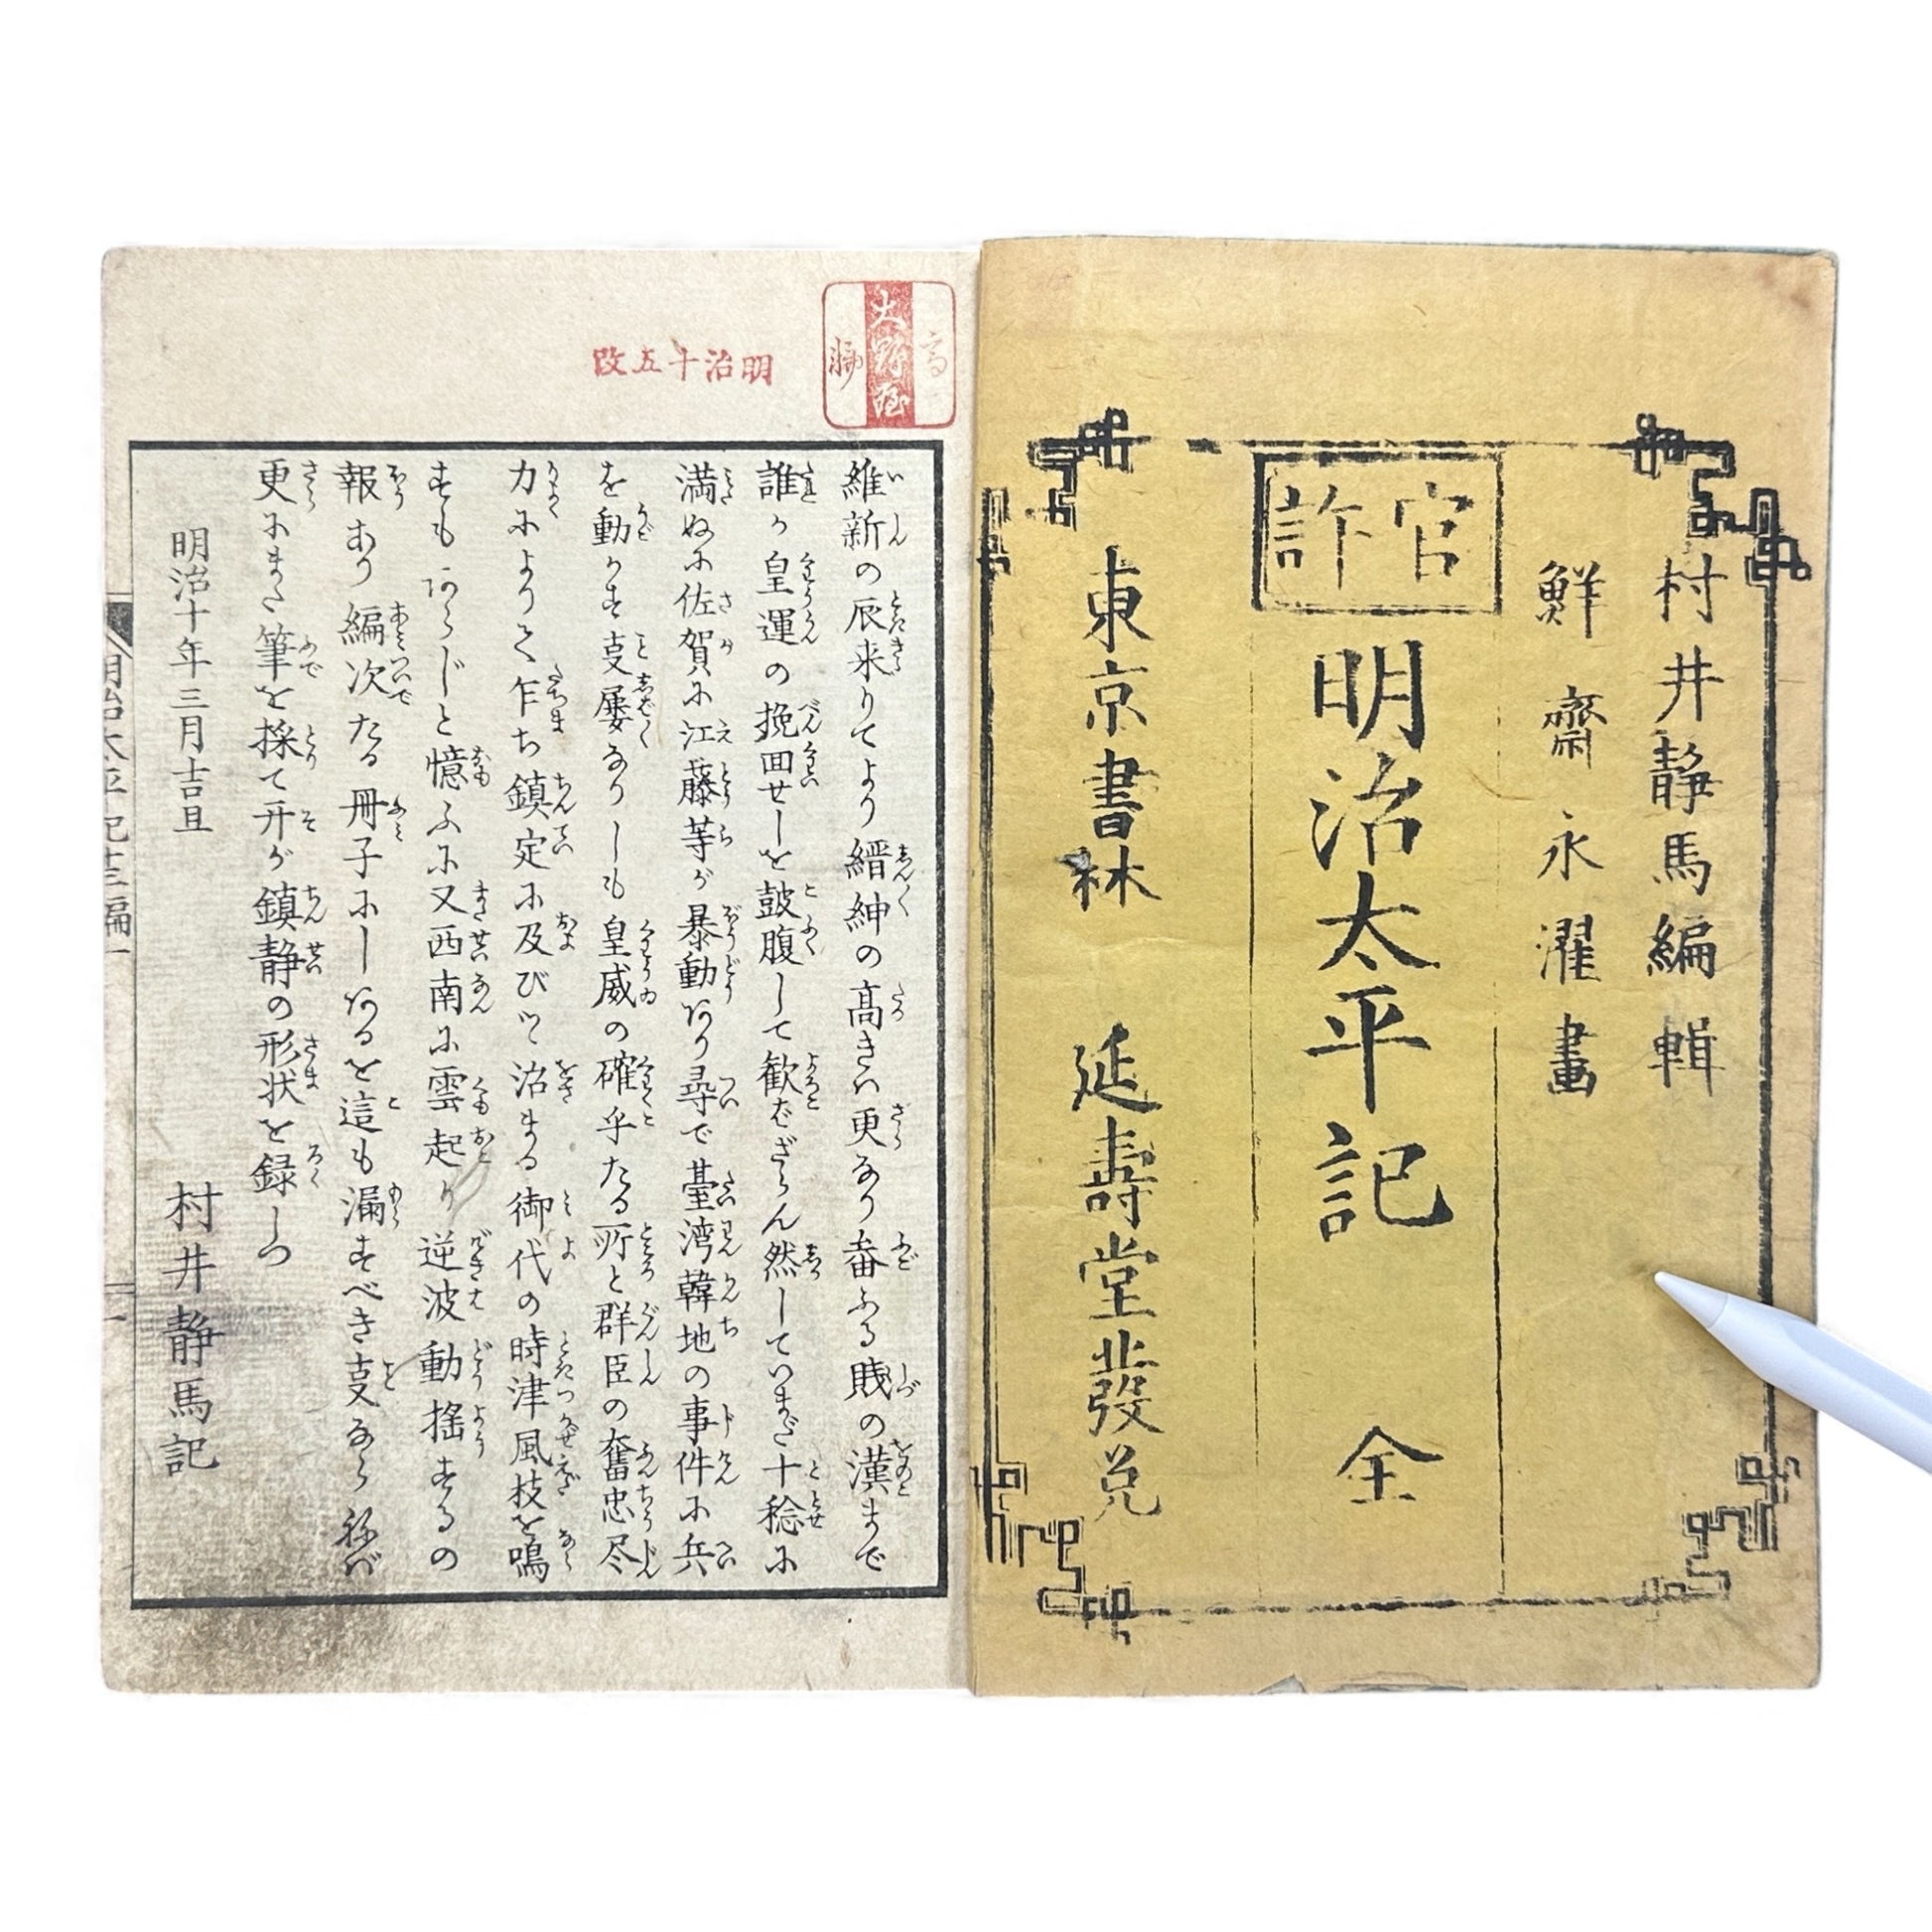 村井静馬編輯
鮮齋永濯畫
官許
明治太平記 全
東京書林 延壽堂發兌
大野屋
明治十五改
維新の辰来りてより縉紳の高きハ更なり畚ふる賎の漢まで
誰か皇運の挽回せしを鼓腹して歓ばざらん然していまだ十稔に
満ぬに佐賀に江藤等が暴動あり尋で臺湾韓地の事件に兵
を動かす叓屡なりしも皇威の確乎たる所と群臣の奮忠尽
力によりて乍ち鎮定に及びつゝ治まる御代の時津風枝を鳴
すもあらじと憶ふに又西南に雲起り逆波動揺するの
報あり編次たる冊子にしあるを這も漏すべき叓ならねバ
更にまた筆を採て开が鎮静の形状を録しつ
明治十年三月吉旦
村井静馬記
明治太平記